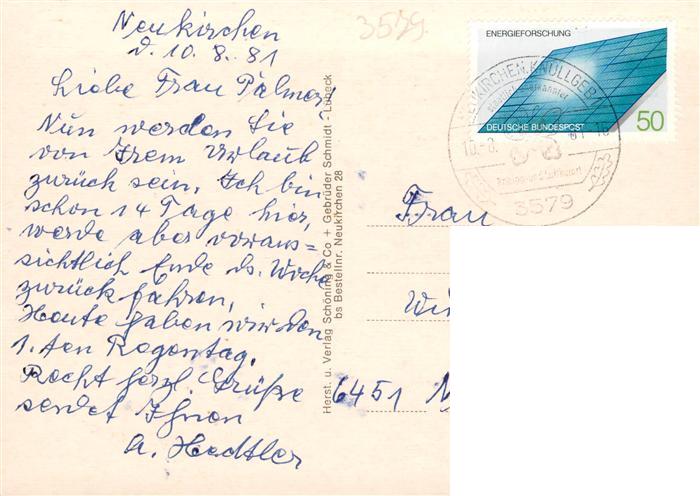 Neukirchen
d. 10. 8. 81
Liebe Frau Palmer,
Nun werden Sie
von Irem Urlaub
zurück sein. Ich bin
schon 14 Tage hier,
werde aber voraus=
sichtlich Ende ds. Woche
zurück fahren,
Heute haben wir den
1. ten Regentag.
Recht herzl. Grüße
sendet Ihnen
A. Hedtler
Herst. u. Verlag Schöning & Co + Gebrüder Schmidt - Lübeck
bs Bestellnr. Neukirchen 28
3579
ENERGIEFORSCHUNG
DEUTSCHE BUNDESPOST
50
NEUKIRCHEN, KNÜLLGEB
Staatlich anerkannter
10.-8. 81-16
Erholungs- und Luftkurort
3579
Frau
6451